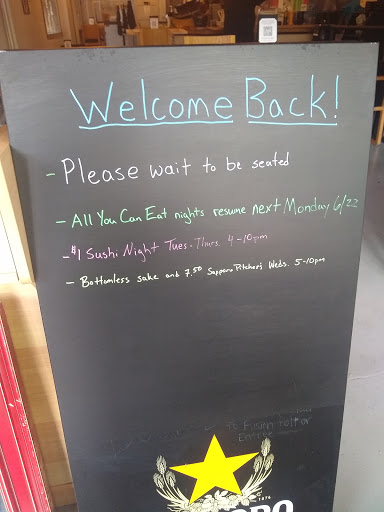 Welcome Back!
- Please wait to be seated
- All You Can Eat nights resume next Monday 6/22
- $1 Sushi Night Tues. Thurs. 4-10pm
- Bottomless sake and 7.50 Sapporo Pitchers Weds. 5-10pm
Fusion roll or
Entree
1876